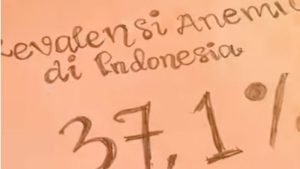 revalensi Anemi
di Indonesia
37,1%